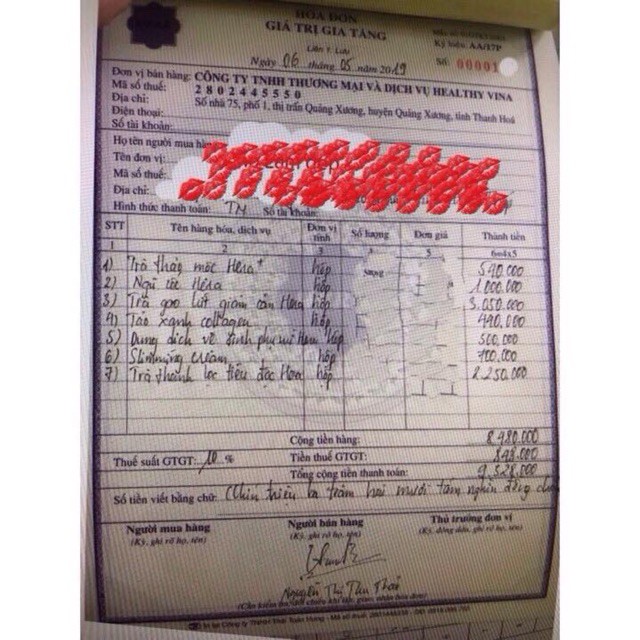 HÓA ĐƠN
GIÁ TRỊ GIA TĂNG
Liên 1: Lưu
Ký hiệu: AA/17P
Ngày 06 tháng 05 năm 2019
Số: 00001
Đơn vị bán hàng: CÔNG TY TNHH THƯƠNG MẠI VÀ DỊCH VỤ HEALTHY VINA
Mã số thuế: 2802445550
Địa chỉ: Số nhà 75, phố 1, thị trấn Quảng Xương, huyện Quảng Xương, tỉnh Thanh Hoá
Điện thoại:
Số tài khoản:
Họ tên người mua hàng
Tên đơn vị:
Mã số thuế:
Địa chỉ:
Hình thức thanh toán: TM Số tài khoản:
STT Tên hàng hóa, dịch vụ Đơn vị tính Số lượng Đơn giá Thành tiền
1 2 3 4 5 6=4x5
1) Trà thảo mộc Hera+ hộp 540.000
2) Ngũ cốc Hera hộp 1.000.000
3) Trà gạo lứt giảm cân Hera hộp 3.050.000
4) Táo xanh collagen hộp 440.000
5) Dung dịch vệ sinh phụ nữ Hera hộp 500.000
6) Slimming cream hộp 700.000
7) Trà thanh lọc tiêu độc Hera hộp 2.250.000
Cộng tiền hàng: 8.480.000
Thuế suất GTGT: 10 % Tiền thuế GTGT: 848.000
Tổng cộng tiền thanh toán: 9.328.000
Số tiền viết bằng chữ: Chín triệu ba trăm hai mươi tám nghìn đồng
Người mua hàng Người bán hàng Thủ trưởng đơn vị
(Ký, ghi rõ họ, tên) (Ký, ghi rõ họ, tên) (Ký, đóng dấu, ghi rõ họ, tên)
Nguyễn Thị Thu Thảo
(Cần kiểm tra, đối chiếu khi lập, giao, nhận hóa đơn)